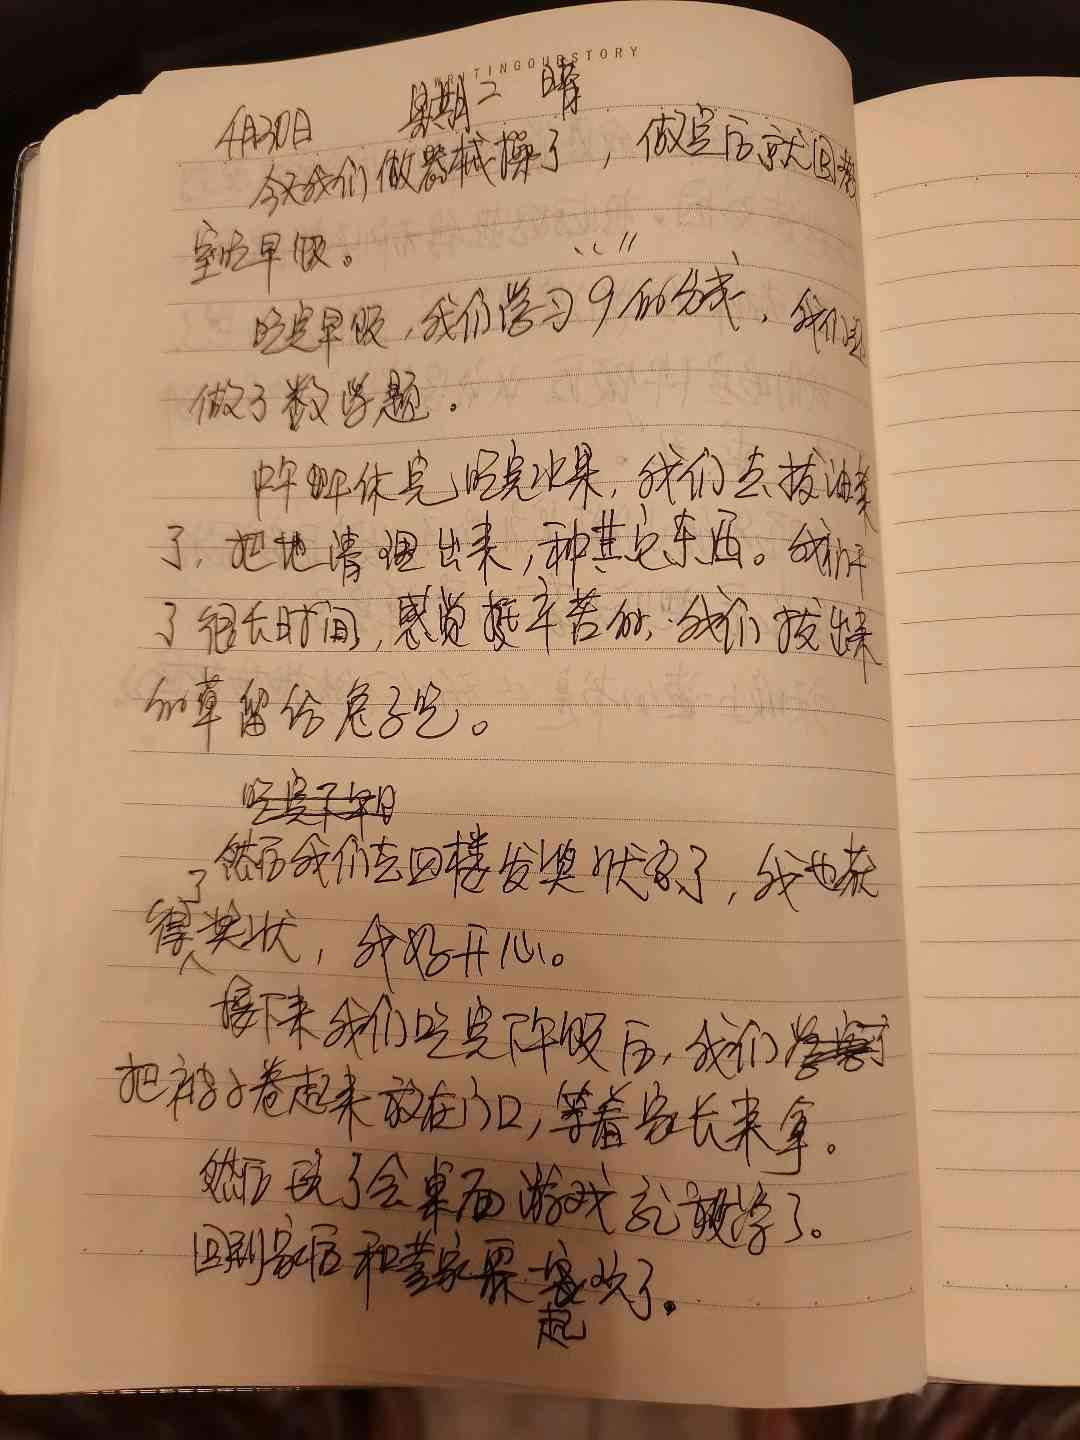 WRITINGOURSTORY
4月30日 星期二 晴
今天我们做器械操了，做完后就回教
室吃早饭。
吃完早饭，我们学习9的分成，我们还
做了数学题。
中午午休完，吃完水果，我们去拔油菜
了，把地清理出来，种其它东西。我们干
了很长时间，感觉挺辛苦的，我们拔出来
的草留给兔子吃。
吃完下午
然后我们去四楼发奖状了，我也获
得了奖状，我好开心。
接下来我们吃完下午饭后，我们
把被子卷起来放在门口，等着家长来拿。
然后玩了会桌面游戏就放学了。
回到家后和 一起玩了。